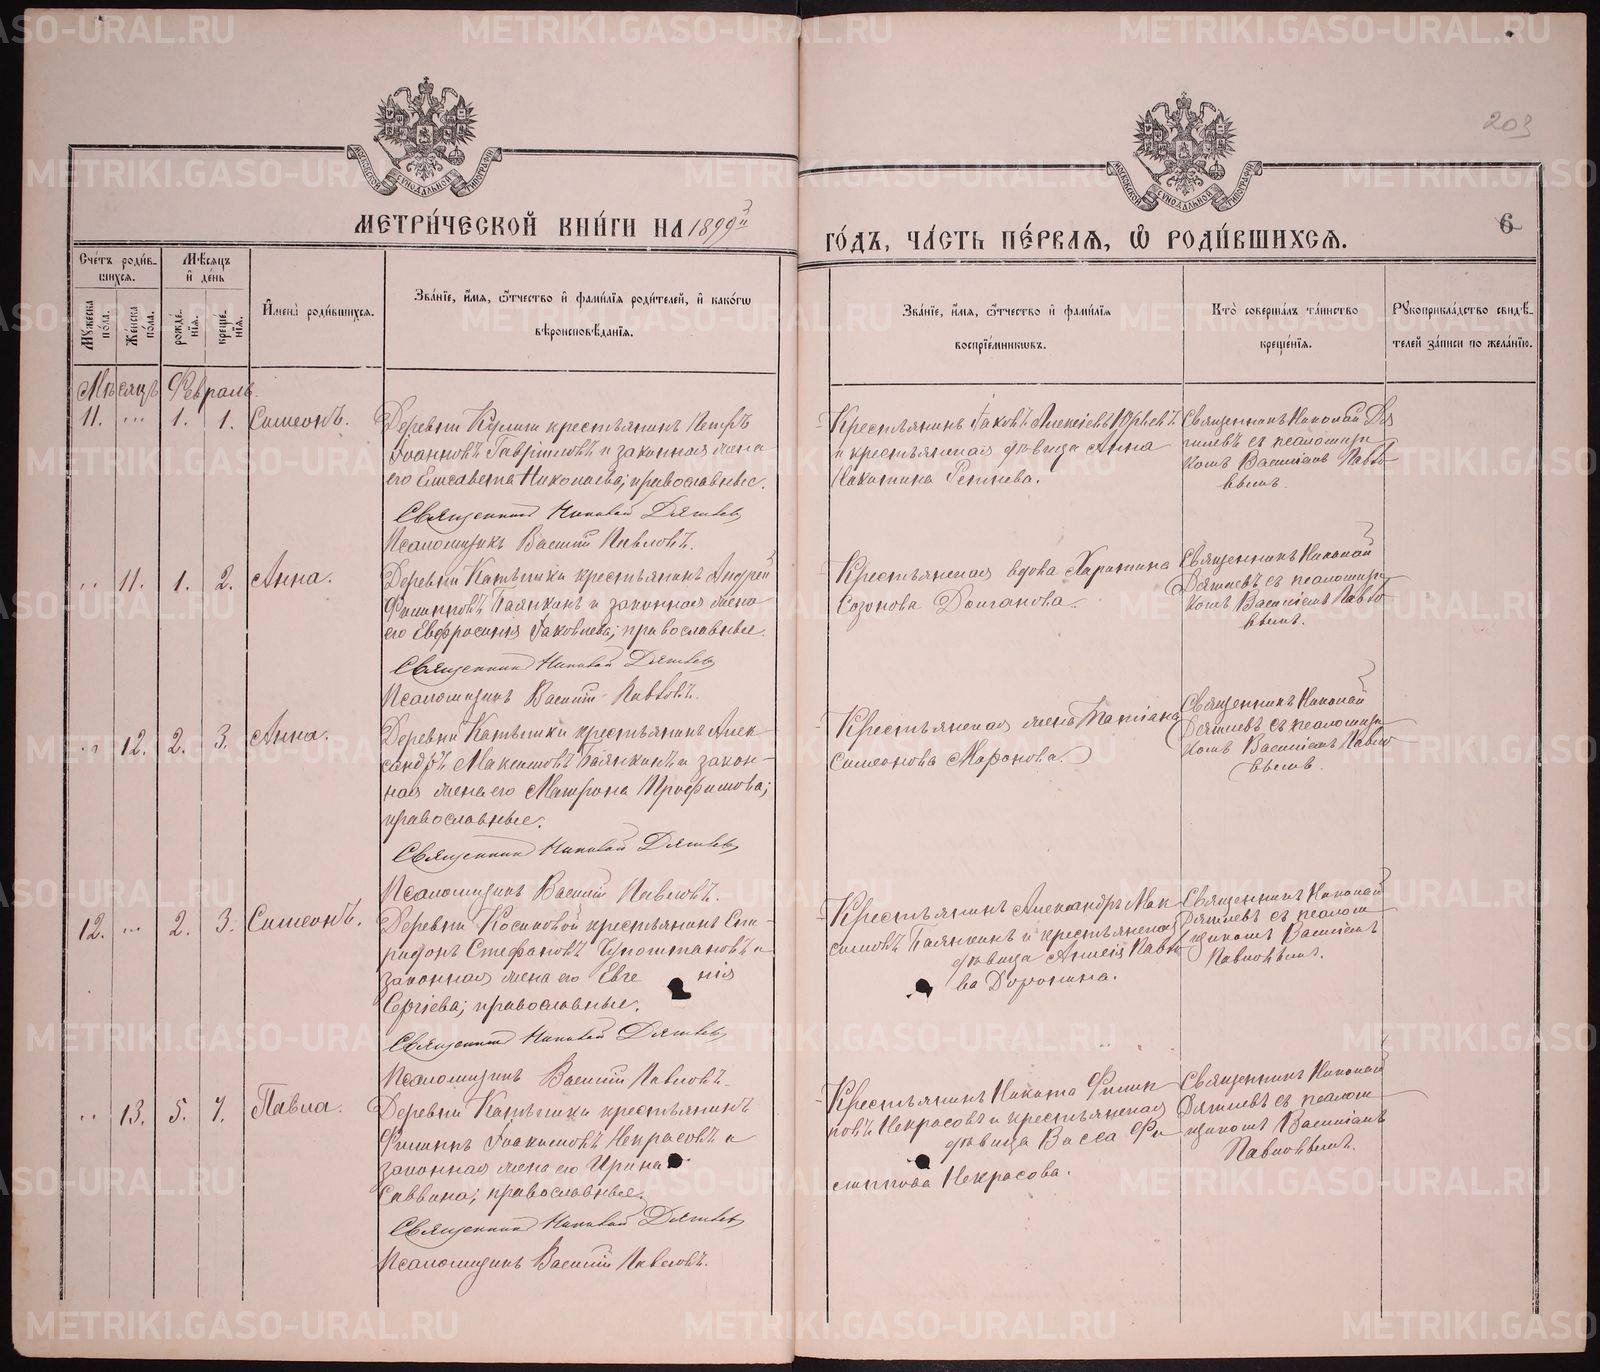 203
МЕТРИ́ЧЕСКОЙ КНИ́ГИ НА 1899й
ГО́ДЪ, ЧА́СТЬ ПЕ́РВАЯ, Ѡ҆ РОДИ́ВШИХСЯ.
6
Сче́тъ роди́в-
шихся.
Мѣ́сяцъ
и҆ де́нь
Мꙋ́жеска по́ла.
Же́нска по́ла.
рожде́-
нїѧ.
креще́-
нїѧ.
И҆мена̀ роди́вшихсѧ.
Зва́нїе, и҆́мѧ, ѻ҆́тчество и҆ фами́лїѧ роди́телей, и҆ како́гѡ
вѣроисповѣ́данїѧ.
Зва́нїе, и҆́мѧ, ѻ҆́тчество и҆ фами́лїѧ
воспрїе́мникѡвъ.
Кто̀ соверша́лъ та́инство
креще́нїѧ.
Рꙋкоприкла́дство свидѣ́-
телей за́писи по жела́нїю.
Мѣсяцъ Февраль.
11. ... 1. 1. Симеонъ.
Деревни крестьянинъ Петръ
Іоанновъ Гавриловъ и законная жена
его Елисавета Николаева; православные.
Священникъ Николай
Псаломщикъ Василій Павловъ.
Крестьянинъ Іаковъ Алексіевъ Юрьевъ
и крестьянская дѣвица Анна
Никитина
Священникъ Николай
съ псаломщи-
комъ Василіемъ Павло-
вымъ.
.. 11. 1. 2. Анна.
Деревни крестьянинъ Андрей
Филипповъ Баянкинъ и законная жена
его Евфросинія Іаковлева; православные.
Священникъ Николай
Псаломщикъ Василій Павловъ.
Крестьянская вдова Харитина
Созонова Долганова.
Священникъ Николай
съ псаломщи-
комъ Василіемъ Павло-
вымъ.
.. 12. 2. 3. Анна.
Деревни крестьянинъ Алек-
сандръ Максимовъ Баянкинъ и закон-
ная жена его Матрона Трофимова;
православные.
Священникъ Николай
Псаломщикъ Василій Павловъ.
Крестьянская жена Татіана
Симеонова
Священникъ Николай
съ псаломщи-
комъ Василіемъ Павло-
вымъ.
12. ... 2. 3. Симеонъ.
Деревни Косиковой крестьянинъ Спи-
ридонъ Стефановъ и
законная жена его Евгенія
Сергіева; православные.
Священникъ Николай
Псаломщикъ Василій Павловъ.
Крестьянинъ Александръ Мак-
симовъ Баянкинъ и крестьянская
дѣвица Павло-
ва Доронина.
Священникъ Николай
съ псалом-
щикомъ Василіемъ
Павловымъ.
.. 13. 5. 7. Павла.
Деревни крестьянинъ
Филиппъ Іоакимовъ Некрасовъ и
законная жена его Ирина
Саввина; православные.
Священникъ Николай
Псаломщикъ Василій Павловъ.
Крестьянинъ Никита Филип-
повъ Некрасовъ и крестьянская
дѣвица Васса Фи-
липпова Некрасова.
Священникъ Николай
съ псалом-
щикомъ Василіемъ
Павловымъ.
METRIKI.GASO-URAL.RU